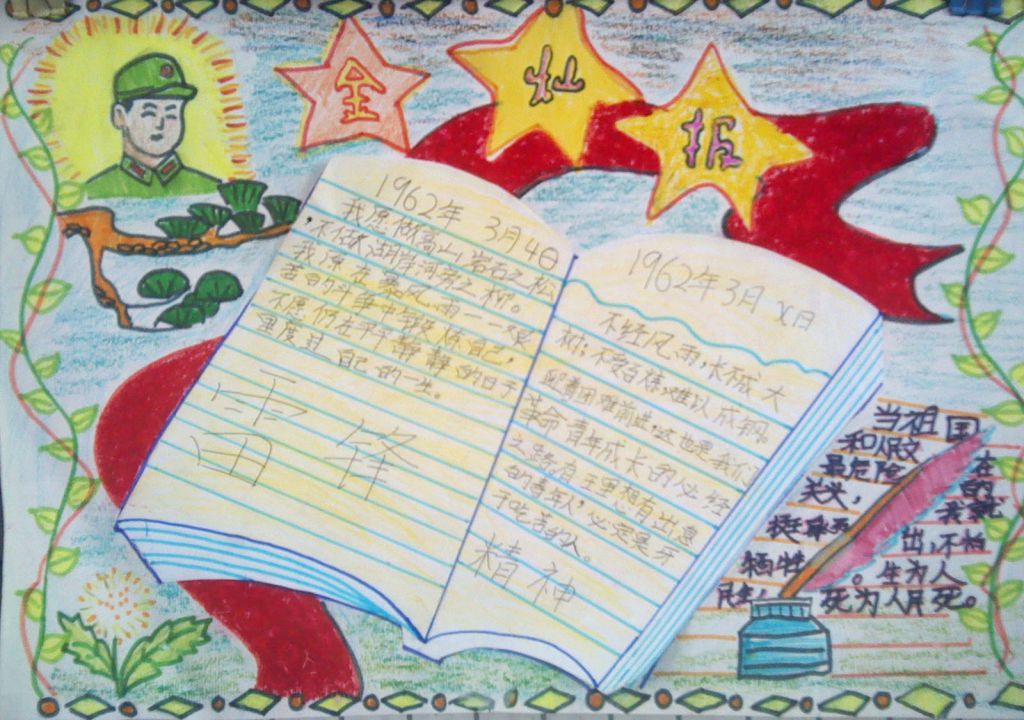 金灿报
1962年 3月4日
我愿做高山岩石之松
，不做湖岸河旁之柳。
我愿在暴风雨——艰
苦的斗争中锻炼自己，
不愿仍在平平静静的日子
里度过自己的一生。
雷锋
1962年3月X日
不经风雨，长不成大
树；不受百炼，难以成钢。
迎着困难前进，这也是我们
革命青年成长的必经
之路。有主里想有出息
的青年人，必定是牙
于吃苦的人。
精神
当祖国
和人民处在
最危险的
关头，我就
挺身而出，不怕
牺牲。生为人
民生，死为人民死。